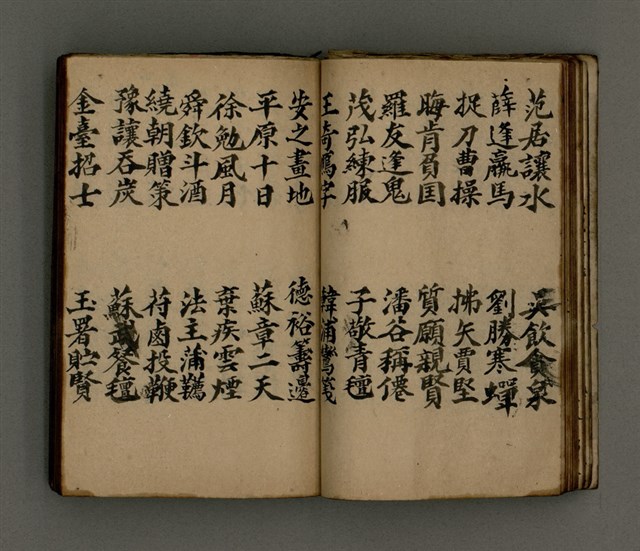 范居讓水 吳飲貪泉
薛逢羸馬 劉勝寒蟬
捉刀曹操 拂矢賈堅
晦肯負囯 質願親賢
羅友逢鬼 潘谷稱僊
茂弘練服 子敬青氊
王奇雁字 韓浦鸞箋
安之畫地 德裕籌邊
平原十日 蘇章二天
徐勉風月 棄疾雲煙
舜欽斗酒 法主蒲韉
繞朝贈策 苻鹵投鞭
豫讓吞炭 蘇武餐氊
金臺招士 玉署貯賢